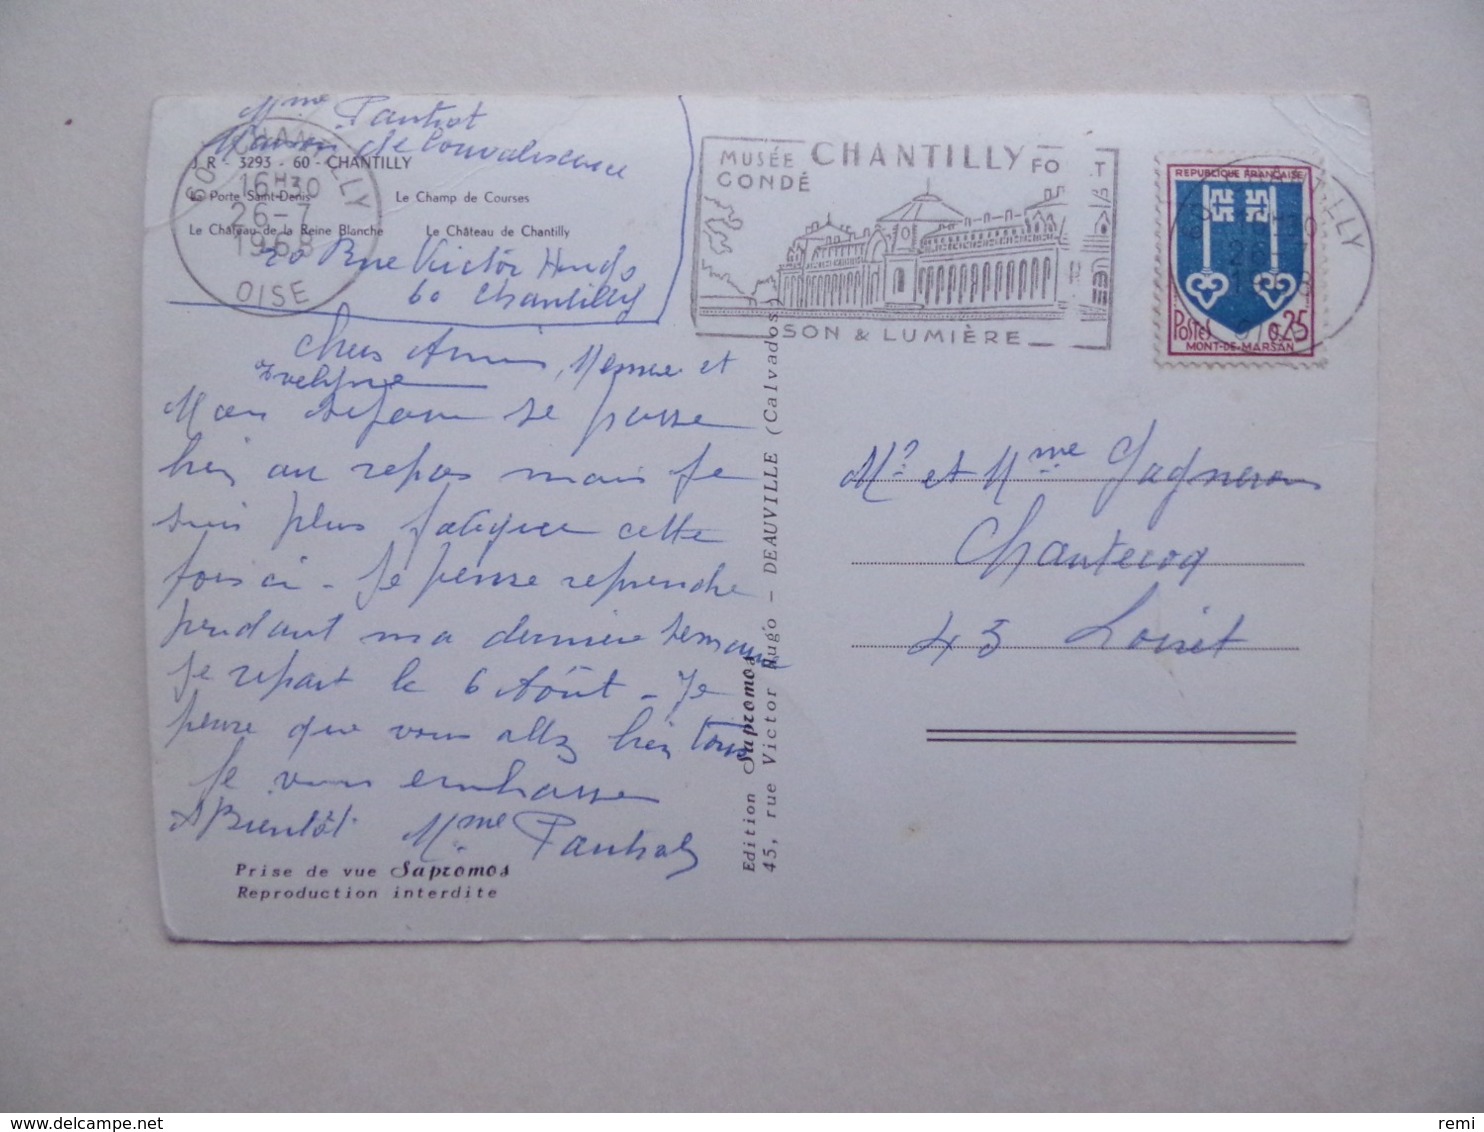 Mme Pautrat
Maison de Convalescence
J. R - 3293 - 60 - CHANTILLY
La Porte Saint-Denis Le Champ de Courses
Le Château de la Reine Blanche Le Château de Chantilly
20 Rue Victor Hugo
60 Chantilly
60 CHANTILLY
16H30
26-7
1968
OISE
MUSÉE CONDÉ
CHANTILLY
SON & LUMIÈRE
REPUBLIQUE FRANÇAISE
POSTES 0,25
MONT-DE-MARSAN
Chers Amis, et
Evelyne
Mon séjour se passe
bien au repos mais je
suis plus fatiguée cette
fois ci - Je pense reprendre
pendant ma dernière semaine
je repart le 6 Août - Je
pense que vous allez bien Tous
Je vous embrasse
A Bientôt. Mme Pautrat
Prise de vue Sapromos
Reproduction interdite
Edition Sapromos
45, rue Victor Hugo - DEAUVILLE (Calvados)
Mr et Mme Gagneron
Chantecoq
45 Loiret
remi
www.delcampe.net